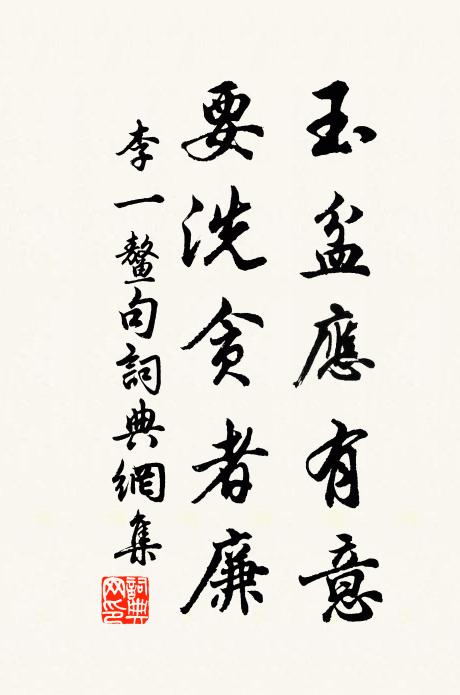 玉盆應有意
要洗貪者廉
李一鼇句詞典網集
詞典網印